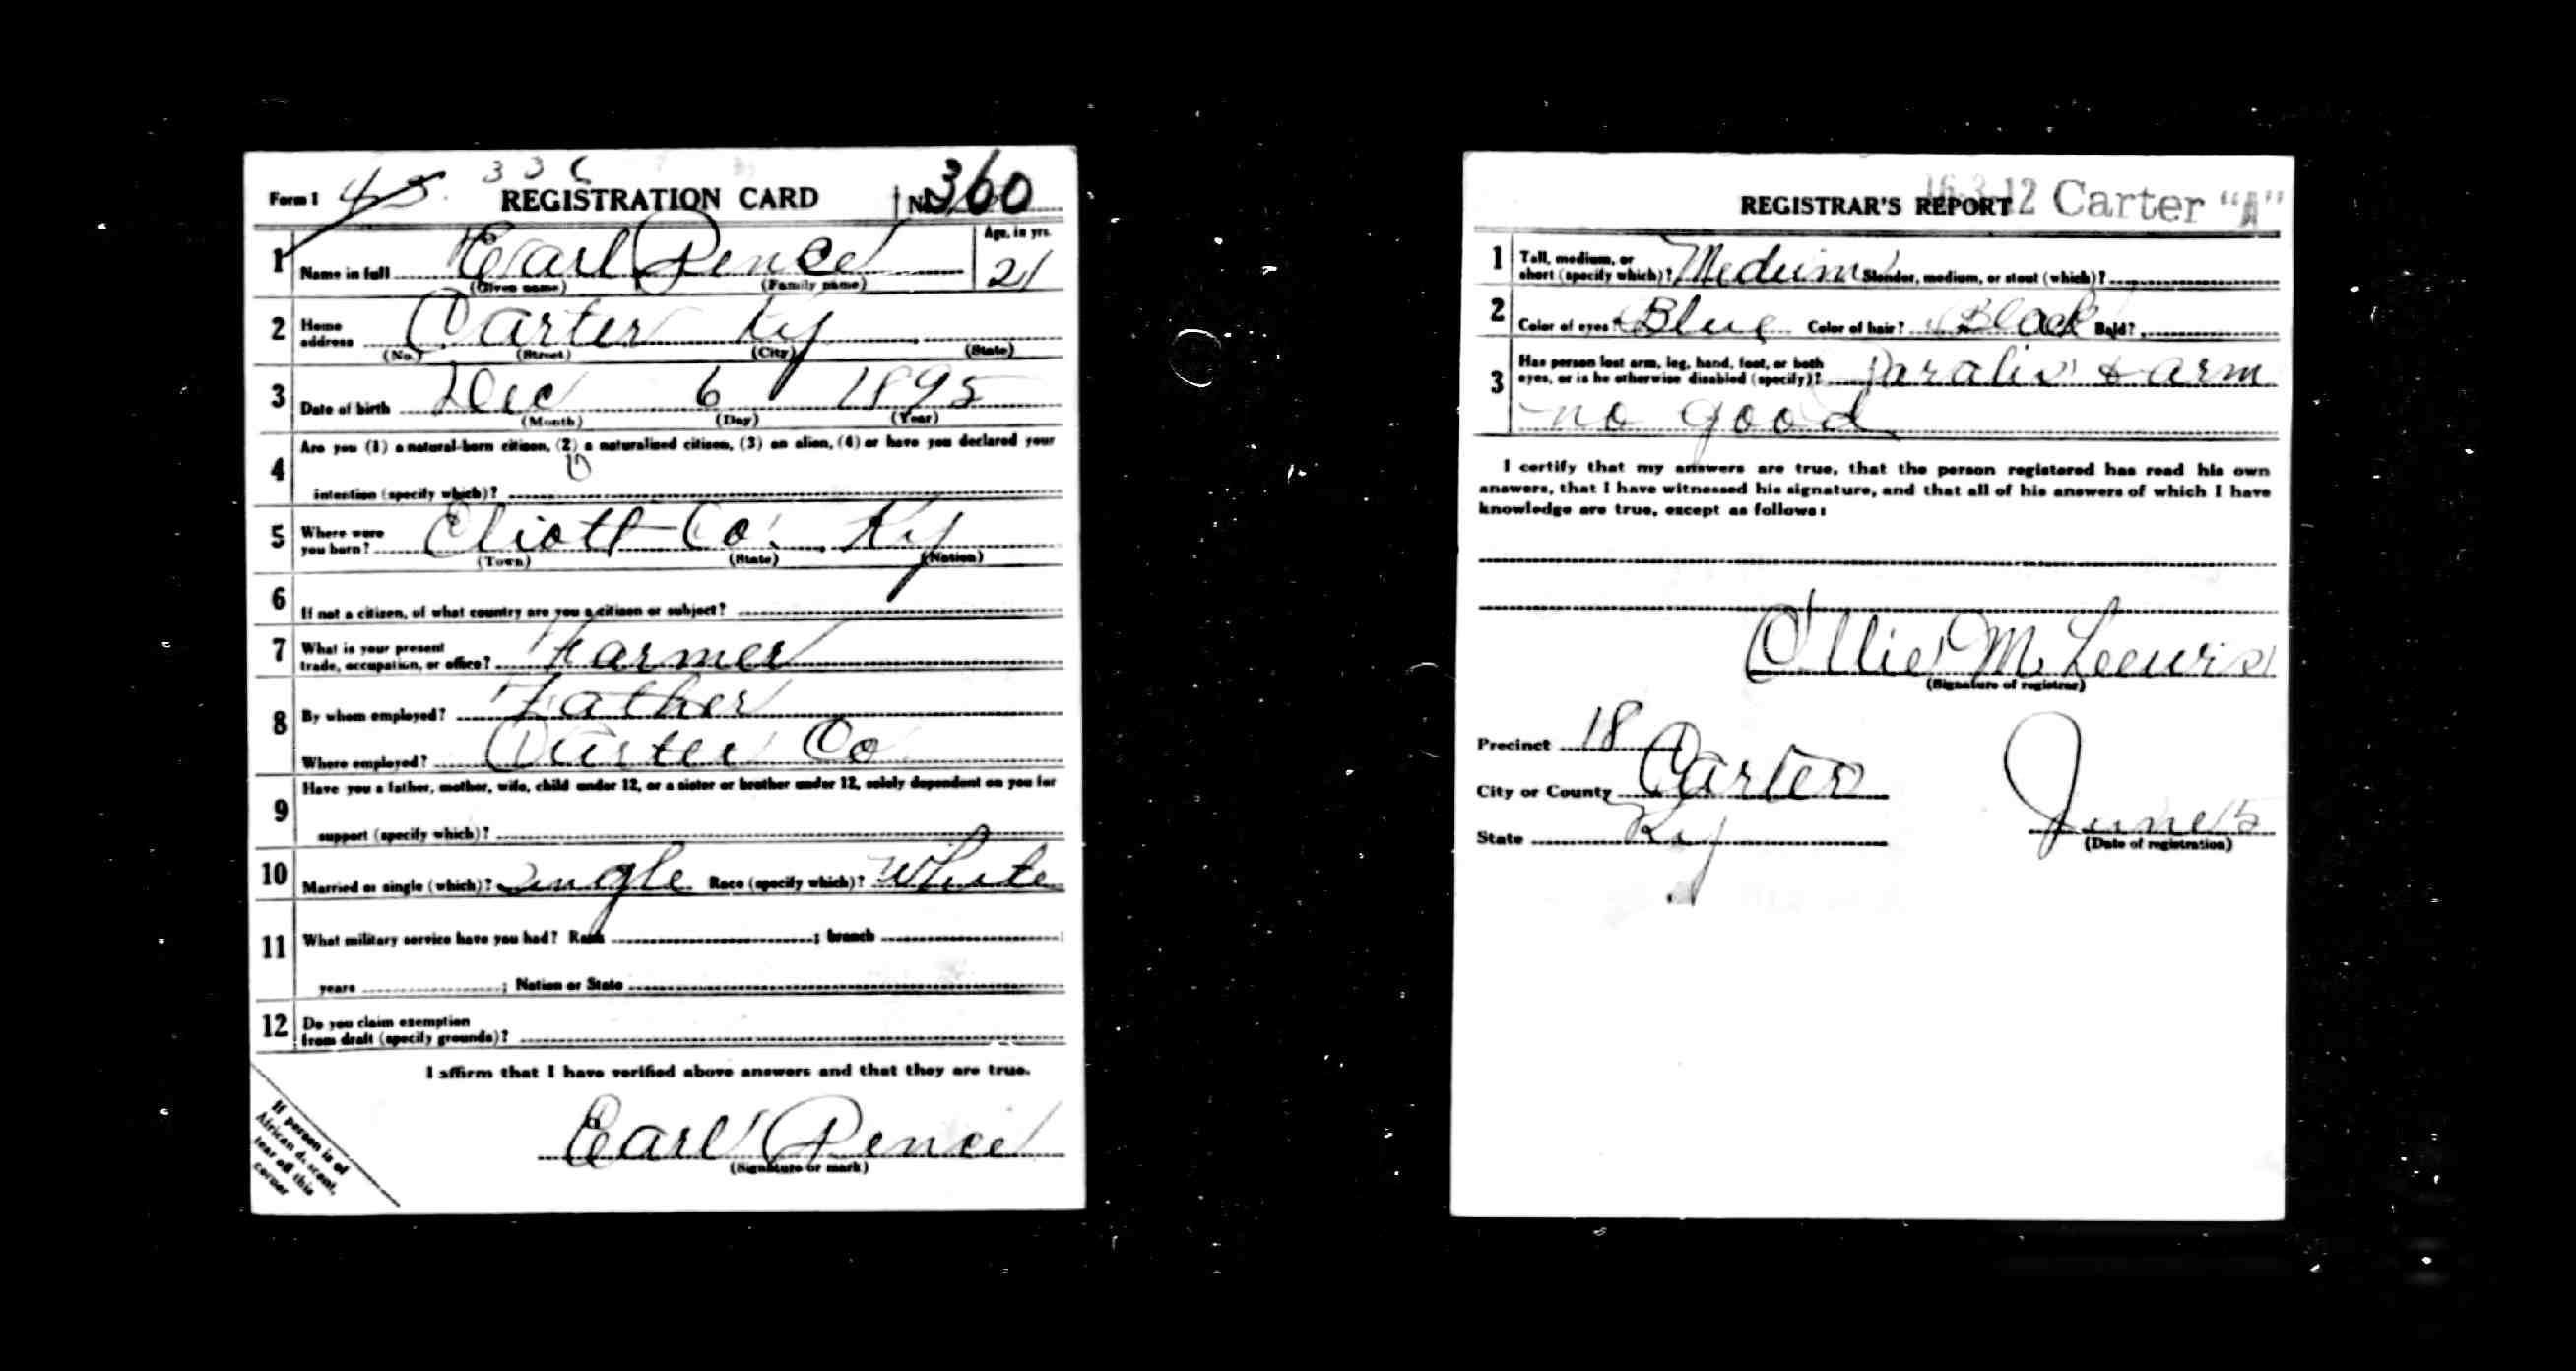 Form 1 45 336 REGISTRATION CARD No. 360
1 Name in full Earl Pence Age, in yrs. 21
(Given name) (Family name)
2 Home address Carter Ky
(No.) (Street) (City) (State)
3 Date of birth Dec 6 1895
(Month) (Day) (Year)
Are you (1) a natural-born citizen, (2) a naturalized citizen, (3) an alien, (4) or have you declared your
4 intention (specify which)?
5 Where were you born? Eliott Co. Ky
(Town) (State) (Nation)
6 If not a citizen, of what country are you a citizen or subject?
7 What is your present trade, occupation, or office? Farmer
8 By whom employed? Father
Where employed? Carter Co
Have you a father, mother, wife, child under 12, or a sister or brother under 12, solely dependent on you for
9 support (specify which)?
10 Married or single (which)? Single Race (specify which)? White
11 What military service have you had? Rank ; branch
years ; Nation or State
12 Do you claim exemption from draft (specify grounds)?
I affirm that I have verified above answers and that they are true.
Earl Pence
(Signature or mark)
If person is of
African descent,
tear off this
corner
REGISTRAR'S REPORT 16-3-12 Carter "A"
1 Tall, medium, or short (specify which)? Medium Slender, medium, or stout (which)?
2 Color of eyes? Blue Color of hair? Black Bald?
3 Has person lost arm, leg, hand, foot, or both eyes, or is he otherwise disabled (specify)? Paralis & arm
no good
I certify that my answers are true, that the person registered has read his own
answers, that I have witnessed his signature, and that all of his answers of which I have
knowledge are true, except as follows:
Ollie M. Leewis
(Signature of registrar)
Precinct 18
City or County Carter
State Ky
June 5
(Date of registration)